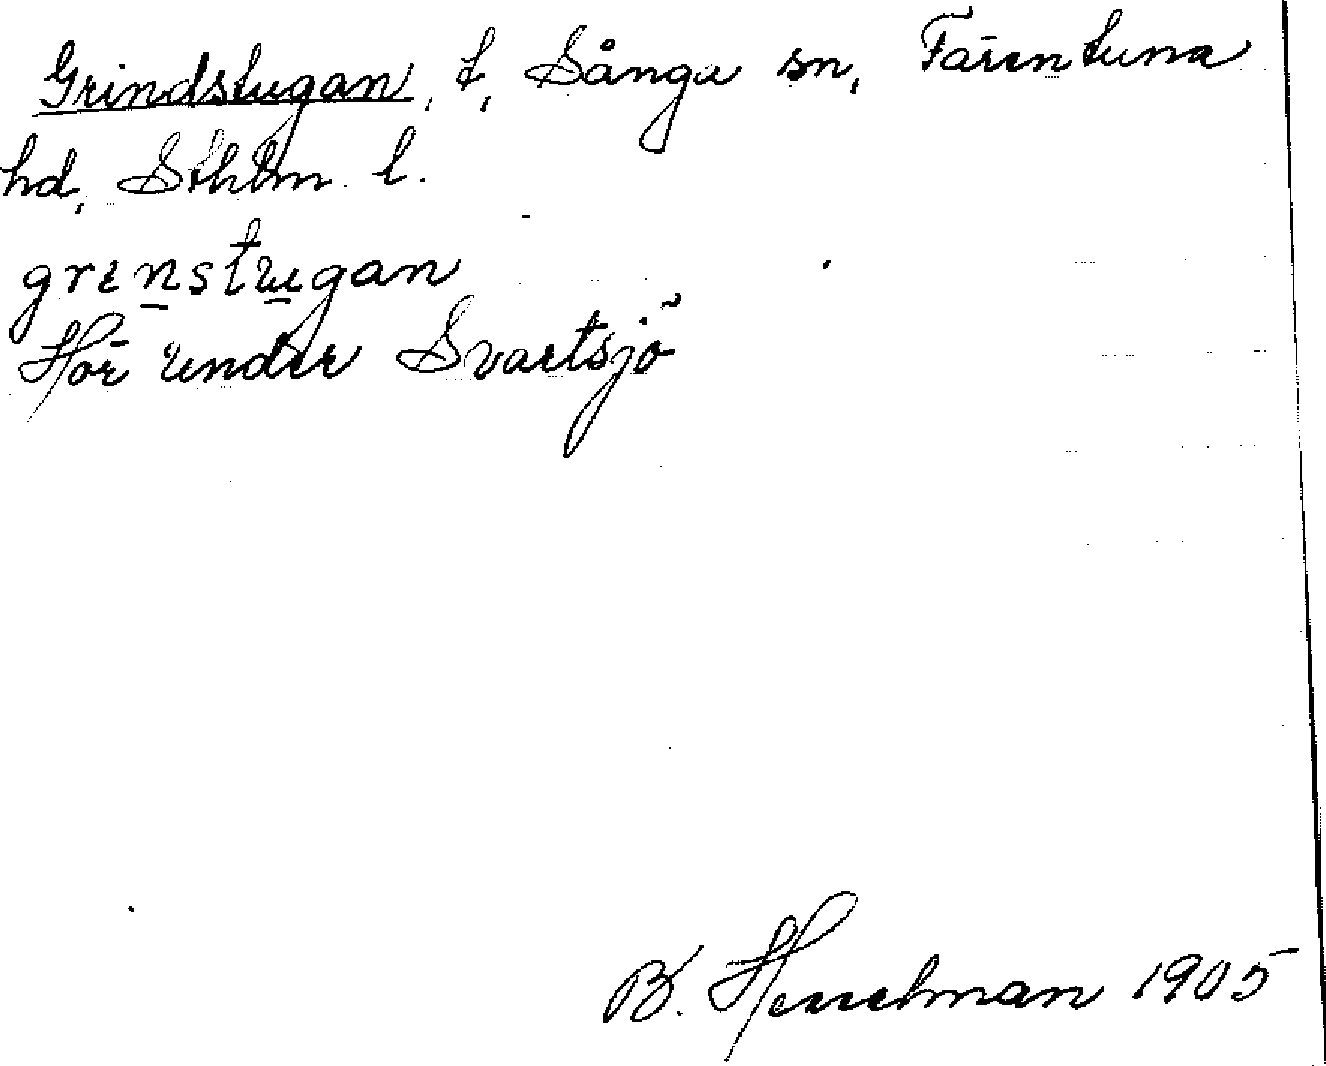 Grindstugan, t, Sånga sn, Färentuna
hd, Sthlm. l.
grenstugan
Hör under Svartsjö
B. Hesselman 1905